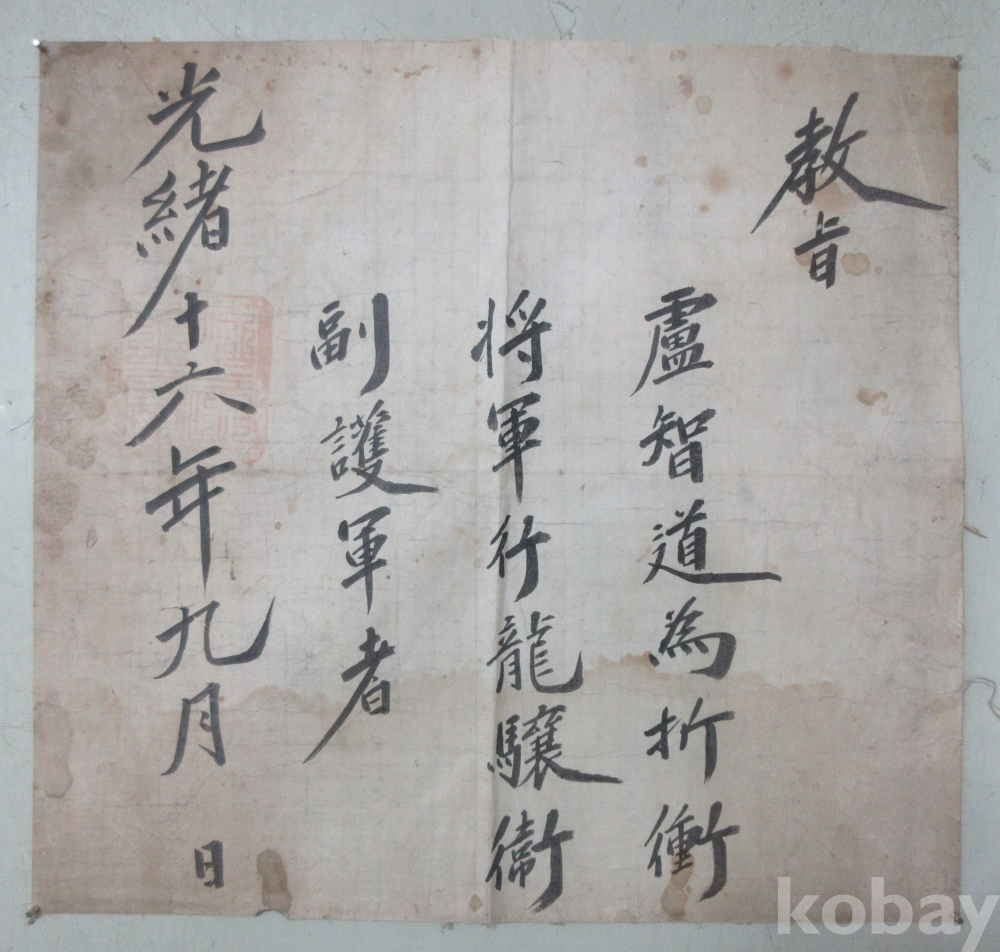 敎旨
盧智道為折衝
将軍行龍驤衛
副護軍者
光緒十六年九月 日
kobay